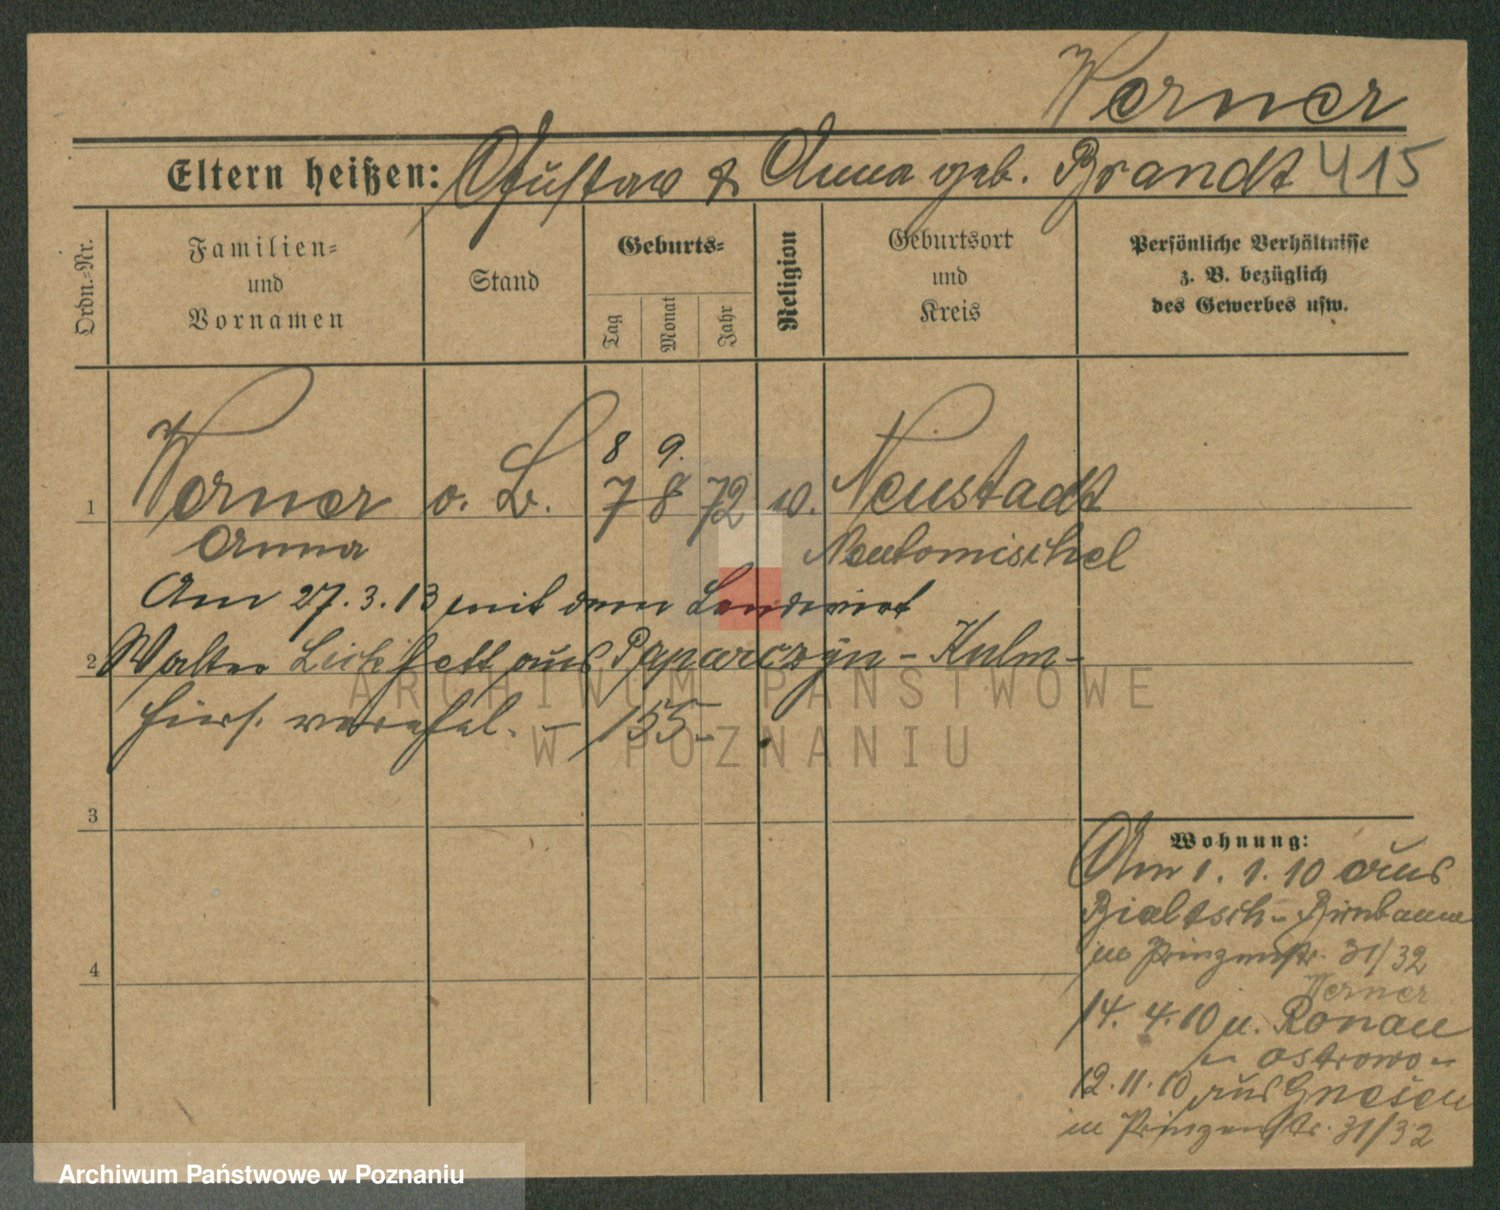 Werner
Eltern heißen: Gustav & Anna geb. Brandt 415
Ordn.-Nr.
Familien-
und
Vornamen
Stand
Geburts-
Tag
Monat
Jahr
Religion
Geburtsort
und
Kreis
Persönliche Verhältnisse
z. B. bezüglich
des Gewerbes usw.
8 9.
1 Werner o. B. 7 8 72 w. Neustadt
Anna Neutomischel
Am 27.3.13 mit dem Landwirt
2 Walter aus Paparczyn - Kulm -
hiers. verehel. - 155 -
3
Wohnung:
Am 1.1.10 aus
Bialtsch - Birnbaum
in Prinzenstr. 31/32
4
Werner
14.4.10 n. Ronau
- Ostrowo -
12.11.10 aus Gnesen
in Prinzenstr. 31/32
ARCHIWUM PAŃSTWOWE
W POZNANIU
Archiwum Państwowe w Poznaniu